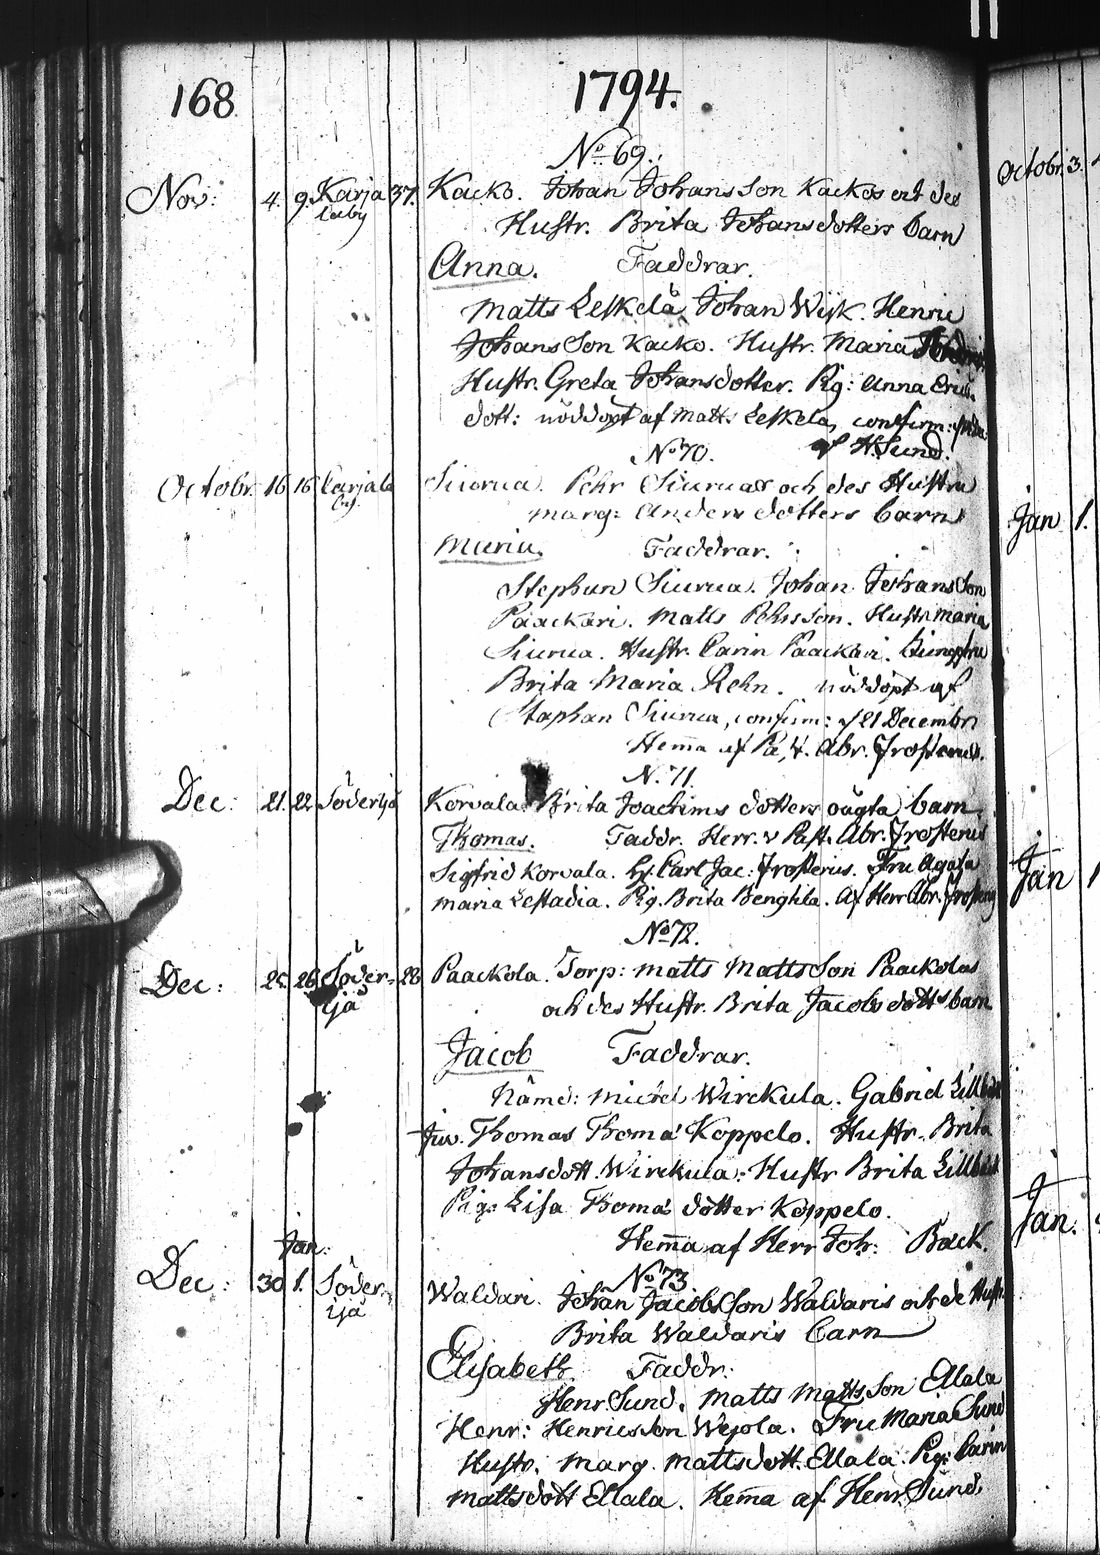 168
1794.
No 69.
Nov: 4. 9. Karja 37. Kacko. Johan Johansson Kackos och des
laby Hustr. Brita Johansdotters barn
Anna. Faddrar.
Matts Leskelä Johan Wijk. Henric
Johansson Kacko. Hustr. Maria
Hustr. Greta Johansdotter. Pig: Anna Erics
dott: nöddöpt af Matts Leskela, confirm:
No 70. af H. Sund.
Octobr. 16 16 Carjala Siurua. Pehr Siuruas och des Hustru
by. marg: Anders dotters barn
Maria. Faddrar.
Stephan Siurua. Johan Johansson
Paackari. Matts Pehrsson. Hustr. Maria
Siurua. Hustr. Carin Paackari. Jungfru
Brita Maria Rehn. nöddöpt af
Staphan Siurua, confirm: d 21 Decembr
Hema af Abr. Frosterus.
N. 71.
Dec: 21. 22 Söderijo Korvala Brita Joachims dotters oägta barn
Thomas. Faddr. Herr. v Past. Abr. Frosterus
Sigfrid Korvala. Hr. Carl Jac: Frosterius. Fru Agata
Maria Lestadia. Pig. Brita Benghta. Af Herr Abr. Frosterus
No 72.
Dec: 25. 26 Söder- 28 Paackola. Torp: Matts Mattsson Paackolas
ijå och des Hustr. Brita Jacobsdott's barn
Jacob Faddrar.
Näme: Michel Wirckula. Gabriel
Juv. Thomas Thoma' Koppelo. Hustr. Brita
Johansdott. Wirckula. Hustr Brita
Pig: Lisa Thoma' dotter Koppelo.
Hema af Herr Joh: Back.
No 73
Jan:
Dec: 30 1. Söder- Waldari. Johan Jacobsson Waldaris och de Hustr.
ijå Brita Waldaris barn
Elisabeth Faddr:
Henr. Sund. Matts Mattsson Ellala
Henr: Henricsson Wejola. Fru Maria Sund
Hustr. Marg. Mattsdott. Ellala. Pig: Carin
Mattsdott Ellala. Hema af Henr. Sund.
Octobr. 3.
Jan 1.
Jan 1
Jan.